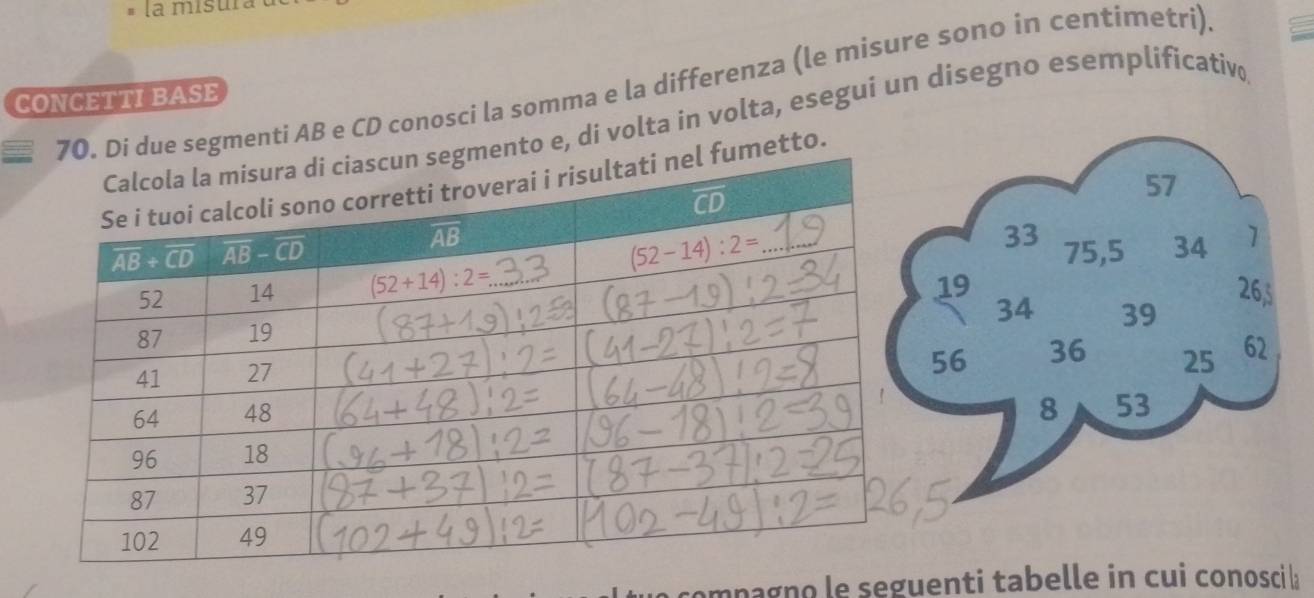 la misura
CONCETTI BASE
70. Di due segmenti AB e CD conosci la somma e la differenza (le misure sono in centimetri).
Calcola la misura di ciascun segmento e, di volta in volta, esegui un disegno esemplificativo.
Se i tuoi calcoli sono corretti troverai i risultati nel fumetto.
AB + CD AB - CD AB CD
52 14 (52+14) : 2 = 33 (52-14) : 2 = 19
87 19 (87+19):2=53 (87-19):2=34
41 27 (41+27):2= (41-27):2=7
64 48 (64+48):2= (64-48):2=8
96 18 (96+18):2= (96-18):2=39
87 37 (87+37):2= (87-37):2=25
102 49 (102+49):2= (102-49):2= 26,5
57
33 75,5 34 7
19 34 39 26,5
56 36 25 62
8 53
le seguenti tabelle in cui conosci